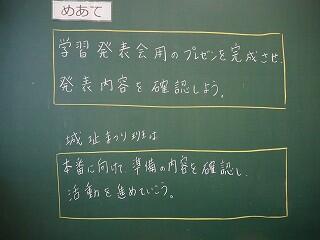 めあて
学習発表会用のプレゼンを完成させ、
発表内容を確認しよう。
城址まつり班は
本番に向けて準備の内容を確認し、
活動を進めていこう。